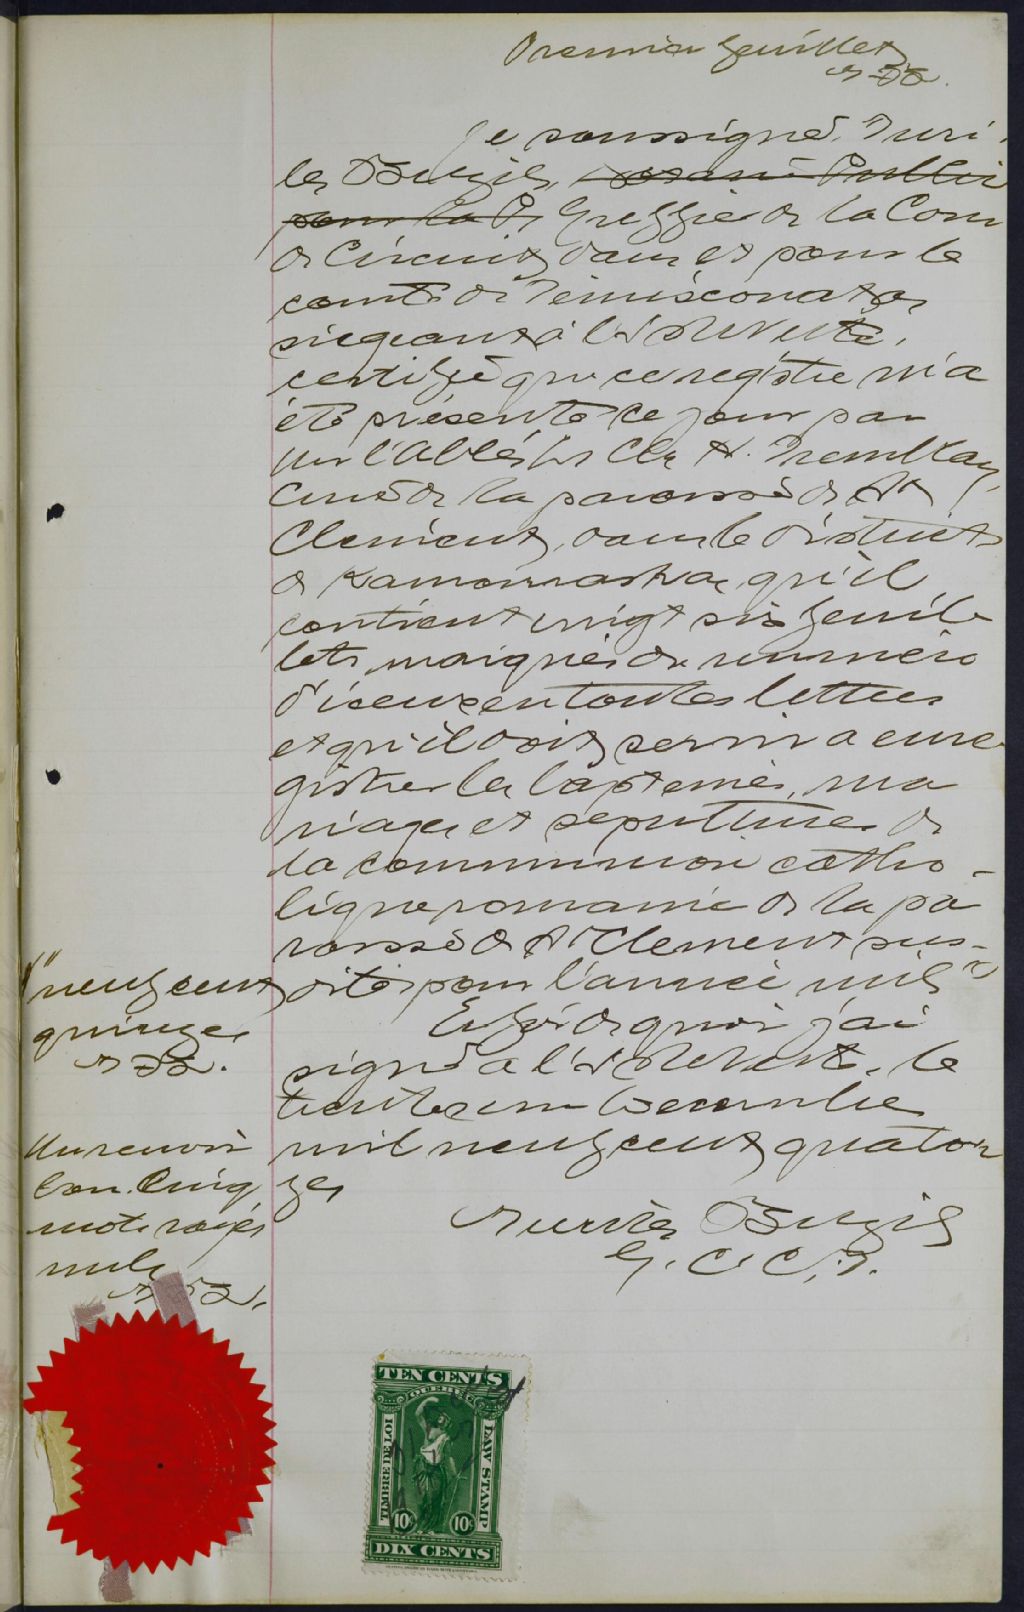 Premier feuillet
Je soussigné,
les greffier de la Cour
de Circuit, dans et pour le
comté de Témiscouata,
siégeant à l'Isle Verte,
certifie que ce registre m'a
été présenté ce jour par
Mr l'Abbé H. Tremblay,
Curé de la paroisse de St
Clement, dans le district
de Kamouraska, qu'il
contient vingt six feuil-
lets, marqués du numéro
d'iceux en toutes lettres
et qu'il doit servir a enre-
gistrer les baptemes, ma
riages et sepultures de
la communion catho-
lique romaine de la pa
roisse de St Clement sus-
dite, pour l'année mil
"neuf cent
quinze
En foi de quoi j'ai
signé a l'Isle Verte, le
trente et un Decembre
mil neuf cent quator
ze
Un renvoi
bon. Cinq
mots rayés
nuls
G. C. C. T.
TEN CENTS
QUEBEC
TIMBRE DE LOI
LAW STAMP
10c 10c
DIX CENTS